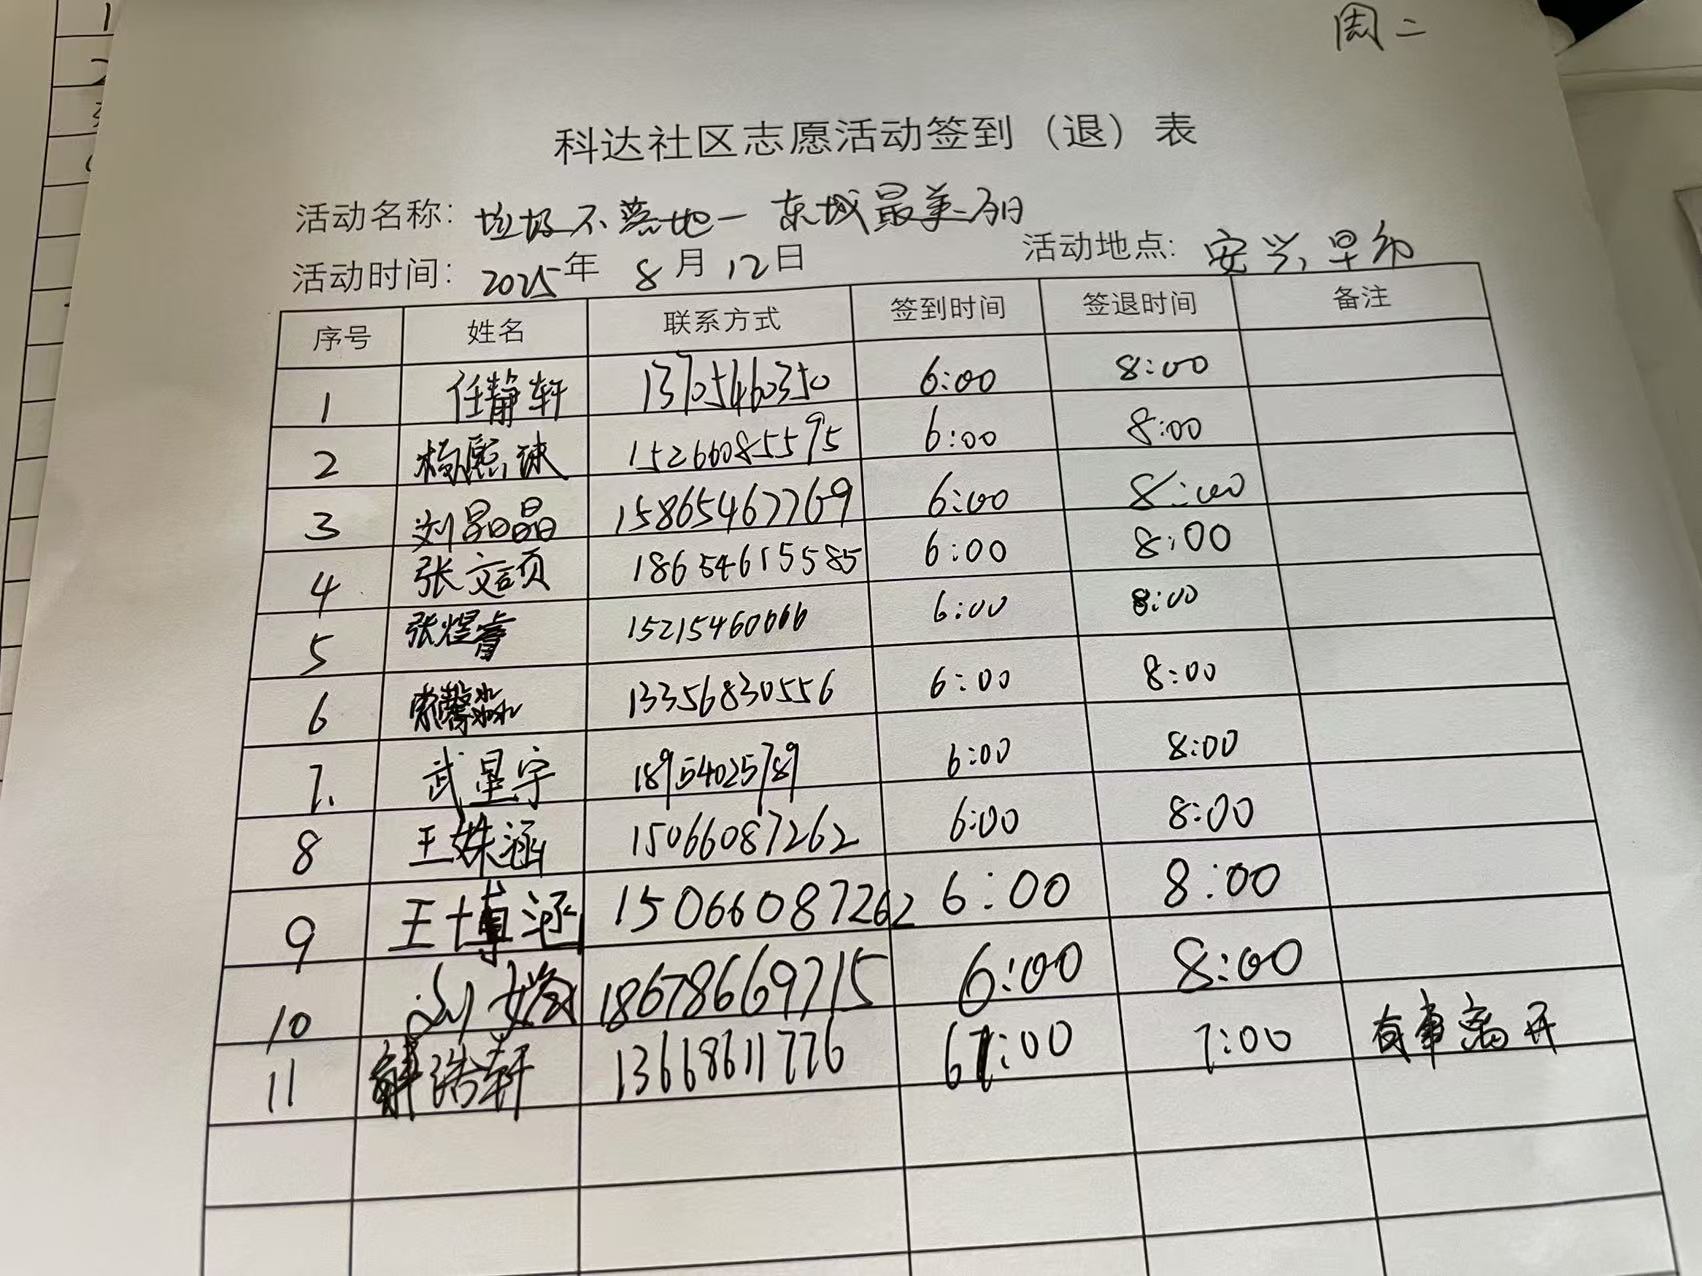 周二
科达社区志愿活动签到（退）表
活动名称：垃圾不落地一东城最美丽
活动时间：2025年 8月12日 活动地点：安兴早市
序号 姓名 联系方式 签到时间 签退时间 备注
1 任静轩 13705460350 6:00 8:00
2 杨熙 15266085595 6:00 8:00
3 刘晶晶 15865467769 6:00 8:00
4 张文 18654615585 6:00 8:00
5 张煜睿 15215460666 6:00 8:00
6 13356830556 6:00 8:00
7. 武星宇 18954025789 6:00 8:00
8 王姝涵 15066087262 6:00 8:00
9 王博涵 15066087262 6:00 8:00
10 刘 18678669715 6:00 8:00
11 浩轩 13668611776 6:00 7:00 有事离开